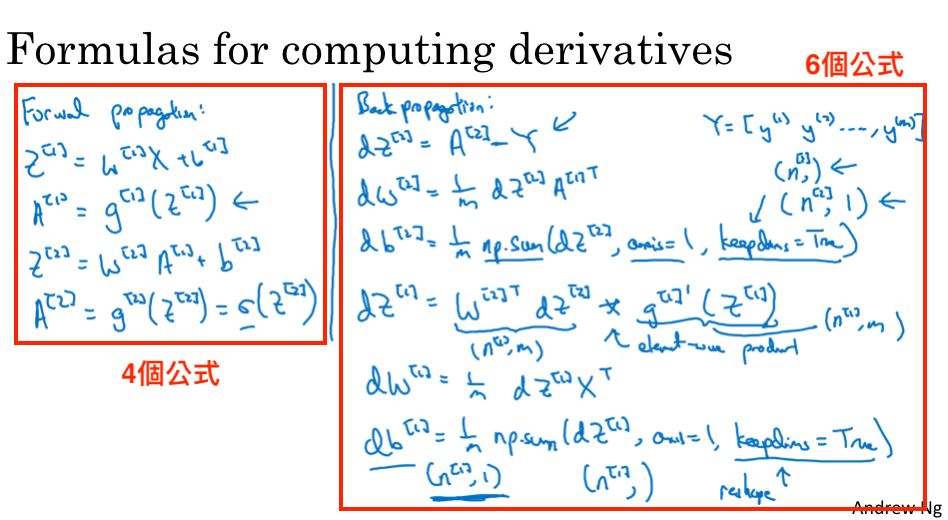 Formulas for computing derivatives
6個公式
Forward propagation:
Z^[1] = W^[1]X + b^[1]
A^[1] = g^[1](Z^[1]) ←
Z^[2] = W^[2] A^[1] + b^[2]
A^[2] = g^[2](Z^[2]) = σ(Z^[2])
4個公式
Back propagation:
dZ^[2] = A^[2] - Y ↙
Y = [y^(1) y^(2) ...., y^(m)]
dW^[2] = 1/m dZ^[2] A^[1]T
(n^[2],) ←
↙ (n^[2], 1) ←
db^[2] = 1/m np.sum(dZ^[2], axis=1, keepdims=True)
dZ^[1] = W^[2]T dZ^[2] * g^[1]'(Z^[1])
(n^[1],m) ↖ element-wise product (n^[1],m)
dW^[1] = 1/m dZ^[1] X^T
db^[1] = 1/m np.sum(dZ^[1], axis=1, keepdims=True)
(n^[1],1) (n^[1],) reshape ↑
Andrew Ng